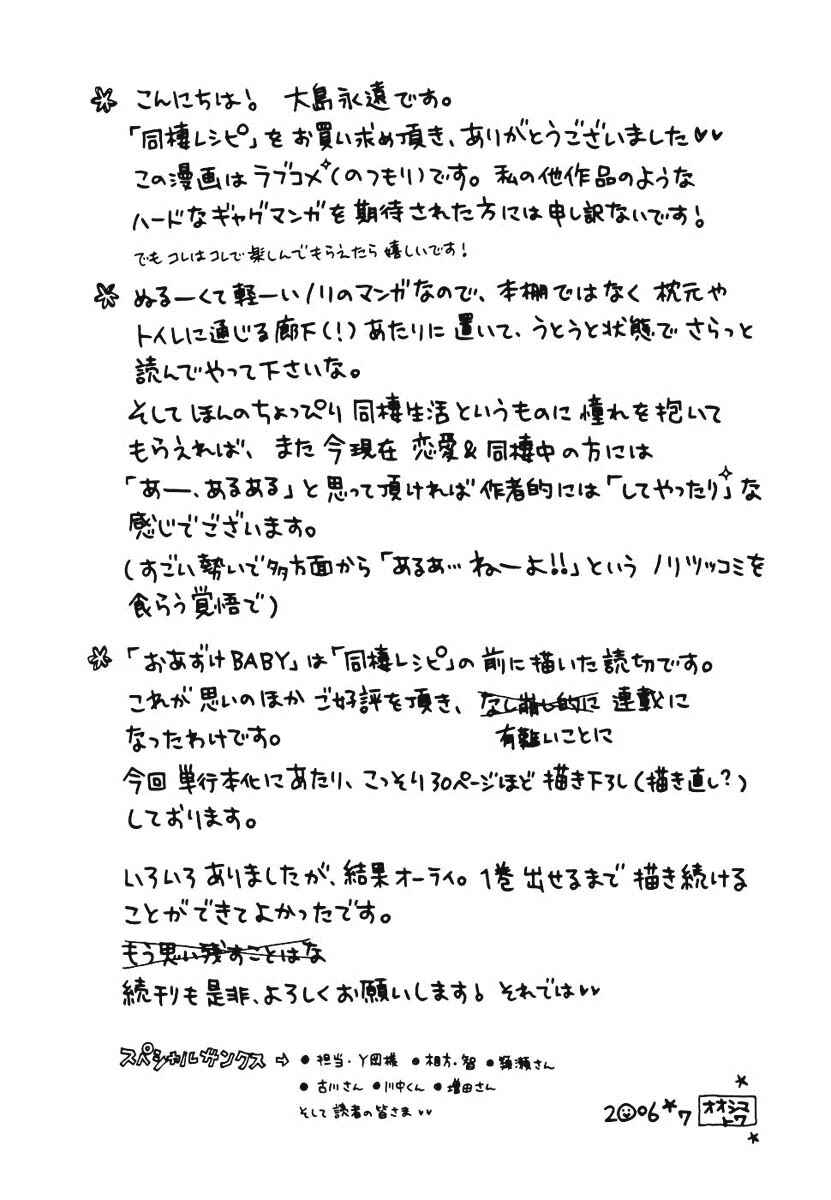 こんにちは! 大島永遠です。
「同棲レシピ」をお買い求め頂き、ありがとうございました♥♥
この漫画はラブコメ(のつもり)です。私の他作品のような
ハードなギャグマンガを期待された方には申し訳ないです!
でもコレはコレで楽しんでもらえたら嬉しいです!
ぬるーくて軽ーいノリのマンガなので、本棚ではなく枕元や
トイレに通じる廊下(!)あたりに置いて、うとうと状態でさらっと
読んでやって下さいな。
そしてほんのちょっぴり同棲生活というものに憧れを抱いて
もらえれば、また今現在恋愛&同棲中の方には
「あー、あるある」と思って頂ければ作者的には「してやったり」な
感じでございます。
(すごい勢いで多方面から「あるあ…ねーよ!!」というノリツッコミを
食らう覚悟で)
「おあずけBABY」は「同棲レシピ」の前に描いた読切です。
これが思いのほかご好評を頂き、なし崩し的に連載に
なったわけです。 有難いことに
今回単行本化にあたり、こっそり30ページほど描き下ろし(描き直し?)
しております。
いろいろありましたが、結果オーライ。1巻出せるまで描き続ける
ことができてよかったです。
もう思い残すことはな
続刊も是非、よろしくお願いします! それでは♥♥
スペシャルサンクス ⇨ ●担当・Y田様 ●相方・智 ●額瀬さん
●古川さん ●川中くん ●増田さん
そして読者の皆さま♥♥
2006★7 オオシマ
トワ